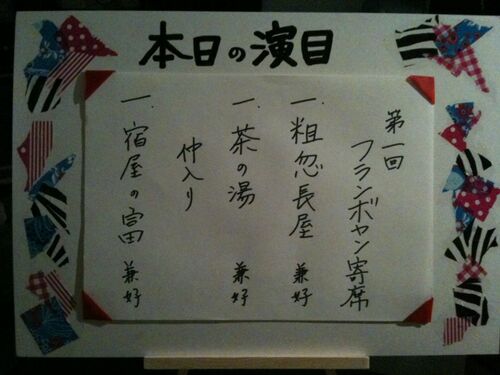 本日の演目
第一回
フランボヤン寄席
一.粗忽長屋 兼好
一.茶の湯 兼好
仲入り
一.宿屋の富 兼好